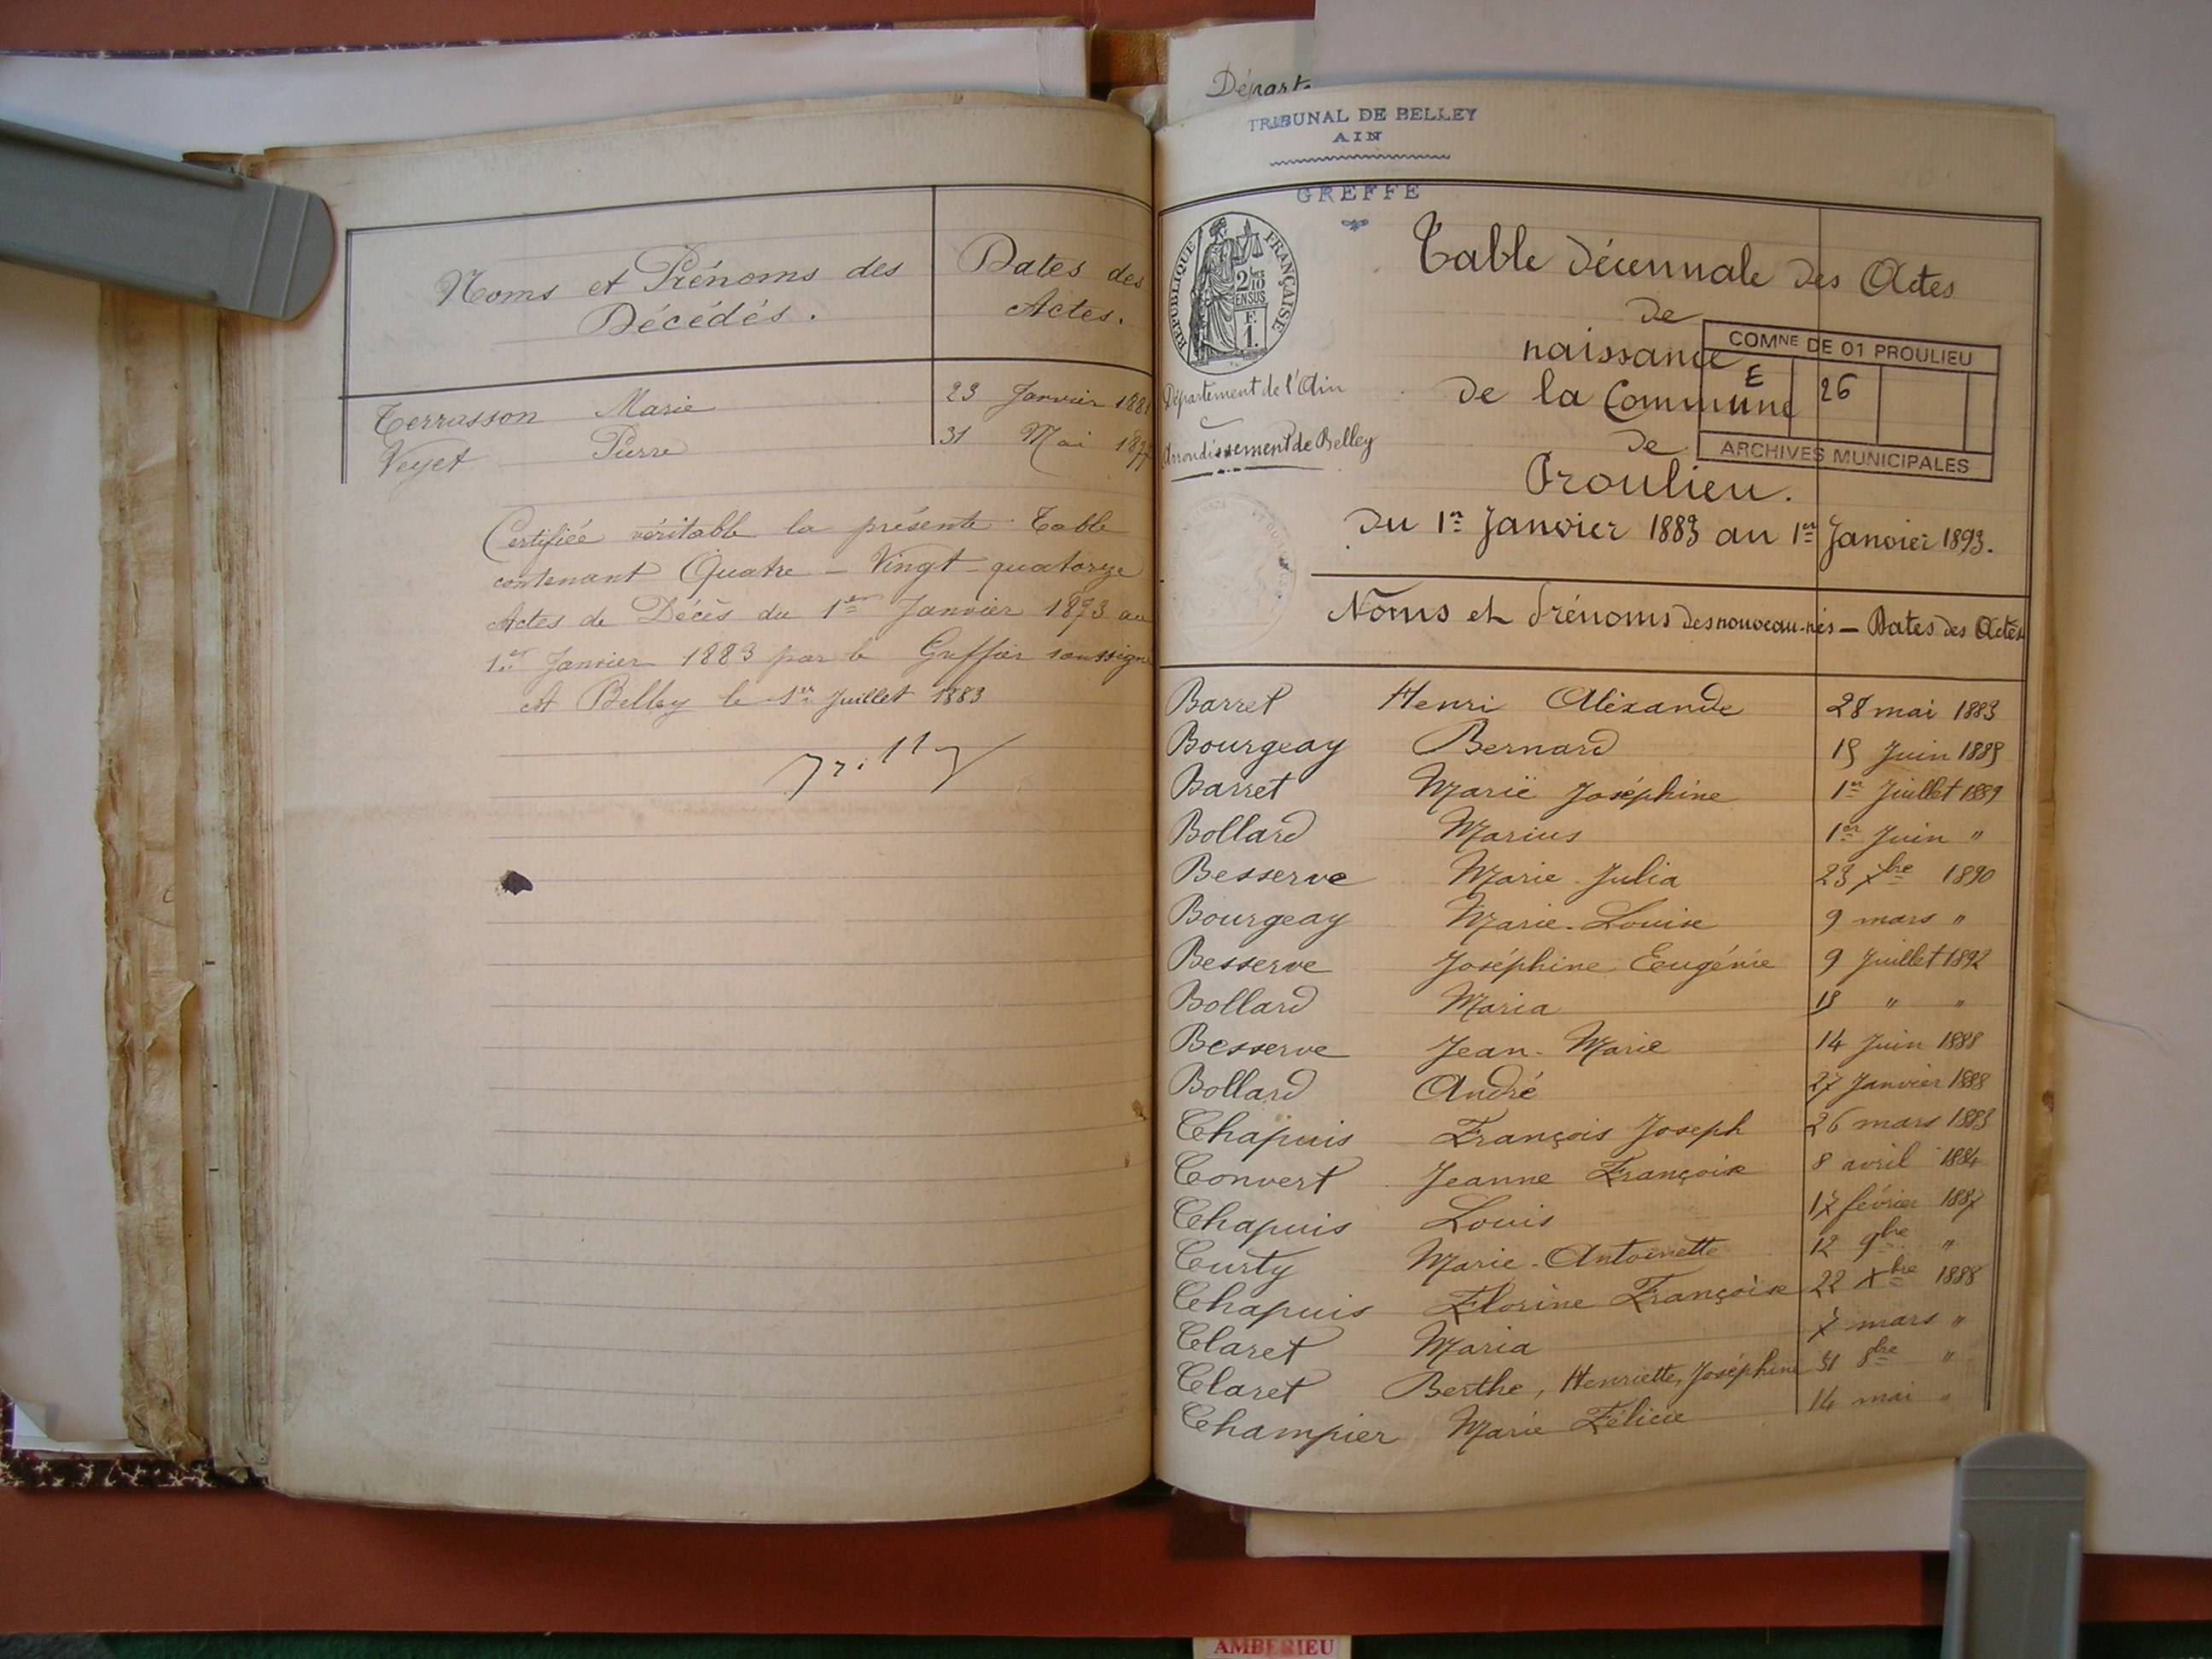 Noms et Prénoms des
Décédés.
Dates des
Actes.
Terrasson Marie 23 Janvier 1881
Veyet Pierre 31 Mai 1877
Certifiée véritable la présente Table
contenant Quatre-Vingt-quatorze
Actes de Décès du 1er Janvier 1873 au
1er Janvier 1883 par le Greffier soussigné
A Belley le 1er Juillet 1883
Départ
TRIBUNAL DE BELLEY
AIN
GREFFE
RÉPUBLIQUE FRANÇAISE
2/10
EN SUS
F.
1.
Département de l'Ain
Arrondissement de Belley
Table décennale des Actes
de
naissance
de la Commune
de
Proulieu.
du 1er Janvier 1883 au 1er Janvier 1893.
COMNE DE 01 PROULIEU
E 26
ARCHIVES MUNICIPALES
Noms et Prénoms des nouveau-nés – Dates des Actes
Barret Henri Aléxande 28 mai 1883
Bourgeay Bernard Juin
Barret Marie Joséphine 1er Juillet 1889
Bollard Marius 1er Juin "
Besserve Marie-Julia 23 Xbre 1890
Bourgeay Marie-Louise 9 mars "
Besserve Joséphine Eugénie 9 Juillet 1892
Bollard Maria " "
Besserve Jean-Marie 14 Juin 1888
Bollard André 27 Janvier 1888
Chapuis François Joseph 26 mars 1883
Convert Jeanne Françoise 8 avril 1884
Chapuis Louis 17 février 1887
Curty Marie-Antoinette 12 9bre "
Chapuis Florine Françoise 22 Xbre 1888
Claret Maria 7 mars "
Claret Berthe, Henriette, Joséphine 31 8bre "
Champier Marie Félicie 14 mai "
AMBERIEU